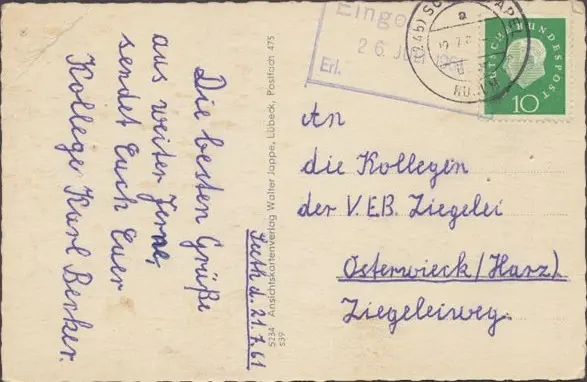 Die besten Grüße
aus weiter Ferne,
sendet Euch Euer
Kollege Karl Berker.
d. 21.7.61
5234 Ansichtskartenverlag Walter Jappe, Lübeck, Postfach 475
539
Eingo
26. JUL
Erl.
(24b)
a
DEUTSCHE BUNDESPOST
10
An
die Kollegen
der V.E.B. Ziegelei
Osterwieck/Harz).
Ziegeleiweg.